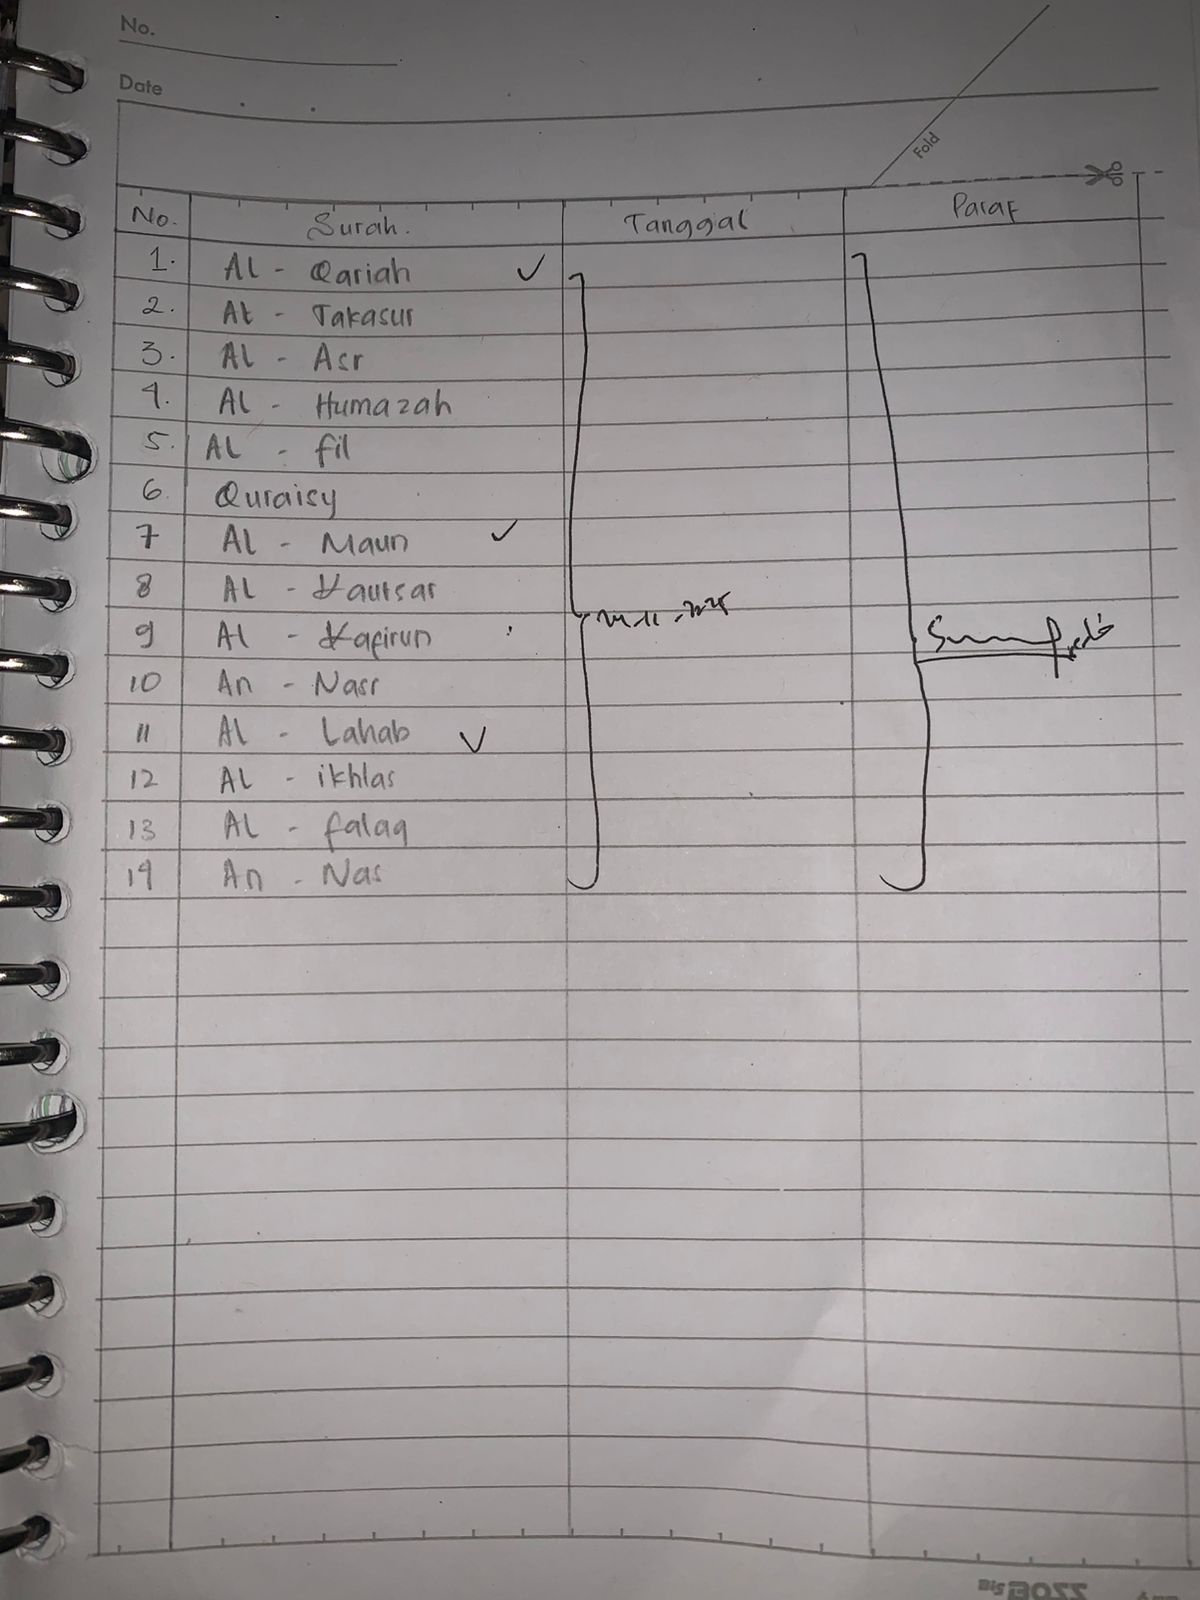 No.
Date
Fold
No. Surah. Tanggal Paraf
1. Al - Qariah ✓
2. At - Takasur
3. Al - Asr
4. Al - Humazah
5. Al - fil
6. Quraisy
7 Al - Maun ✓
8 Al - Kautsar
9 Al - Kafirun
10 An - Nasr
11 Al - Lahab ✓
12 Al - ikhlas
13 Al - falaq
14 An - Nas